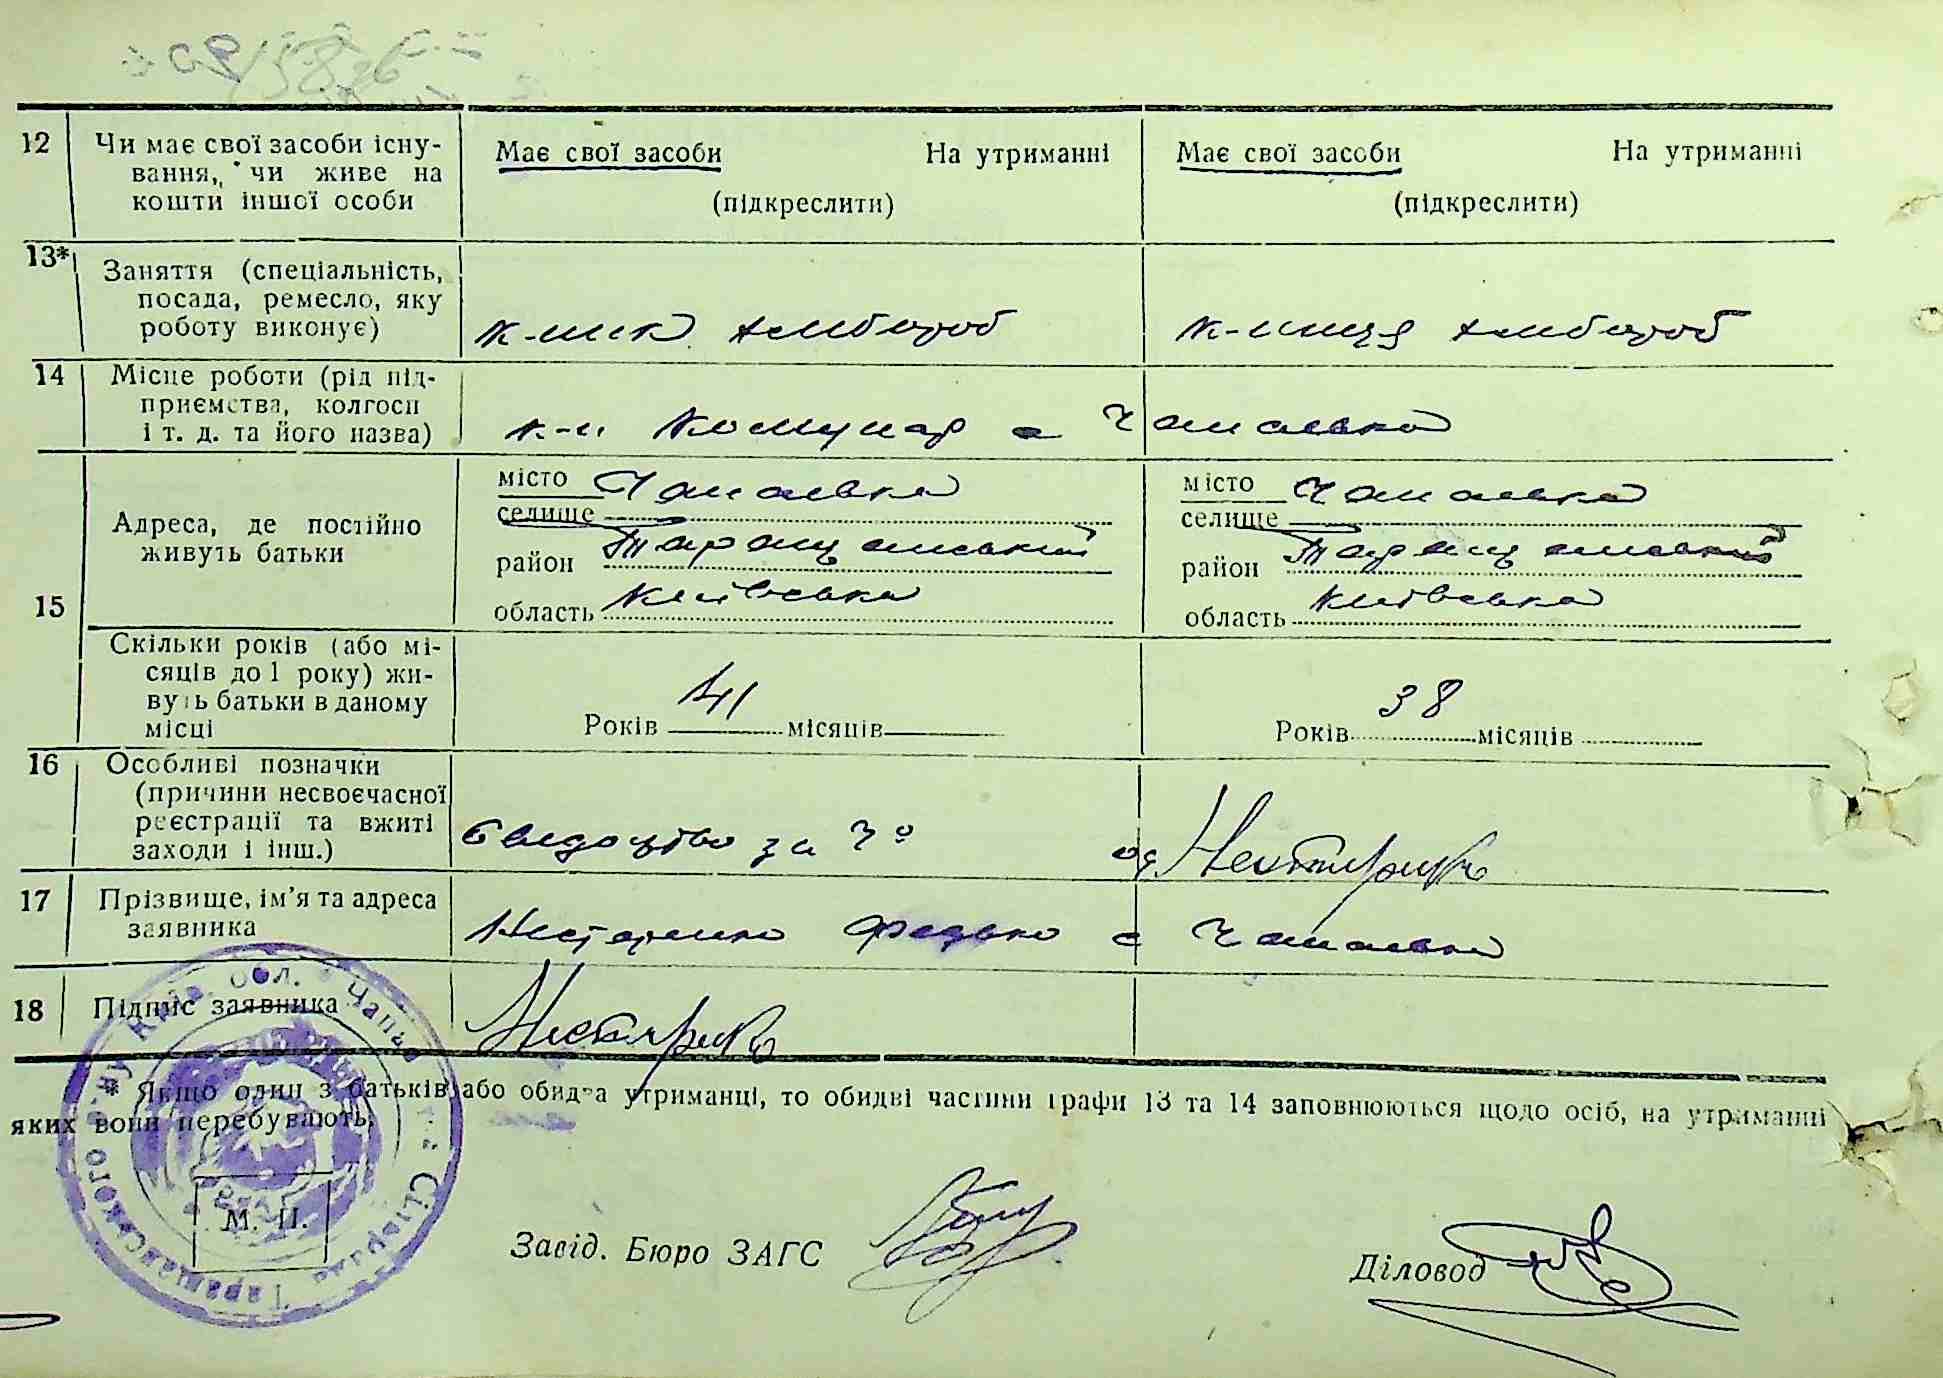 12 Чи має свої засоби існу-
вання, чи живе на
кошти іншої особи
Має свої засоби На утриманні
(підкреслити)
Має свої засоби На утриманні
(підкреслити)
13* Заняття (спеціальність,
посада, ремесло, яку
роботу виконує)
к-ник хлібороб
к-ниця хлібороб
14 Місце роботи (рід під-
приємства, колгосп
і т. д. та його назва)
к-п Комунар с Чапаєвка
15 Адреса, де постійно
живуть батьки
місто Чапаєвка
селище
район Таращанський
область Київська
місто Чапаєвка
селище
район Таращанський
область Київська
Скільки років (або мі-
сяців до 1 року) жи-
вуть батьки в даному
місці
Років 41 місяців
Років 38 місяців
16 Особливі позначки
(причини несвоєчасної
реєстрації та вжиті
заходи і інш.)
Свидоцтво за Ч°
од
17 Прізвище, ім'я та адреса
заявника
Нестеренко Федько с Чапаєвка
18 Підпис заявника
* Якщо один з батьків або обидва утриманці, то обидві частини графи 13 та 14 заповнюються щодо осіб, на утриманні
яких вони перебувають.
М. П.
Завід. Бюро ЗАГС
Діловод